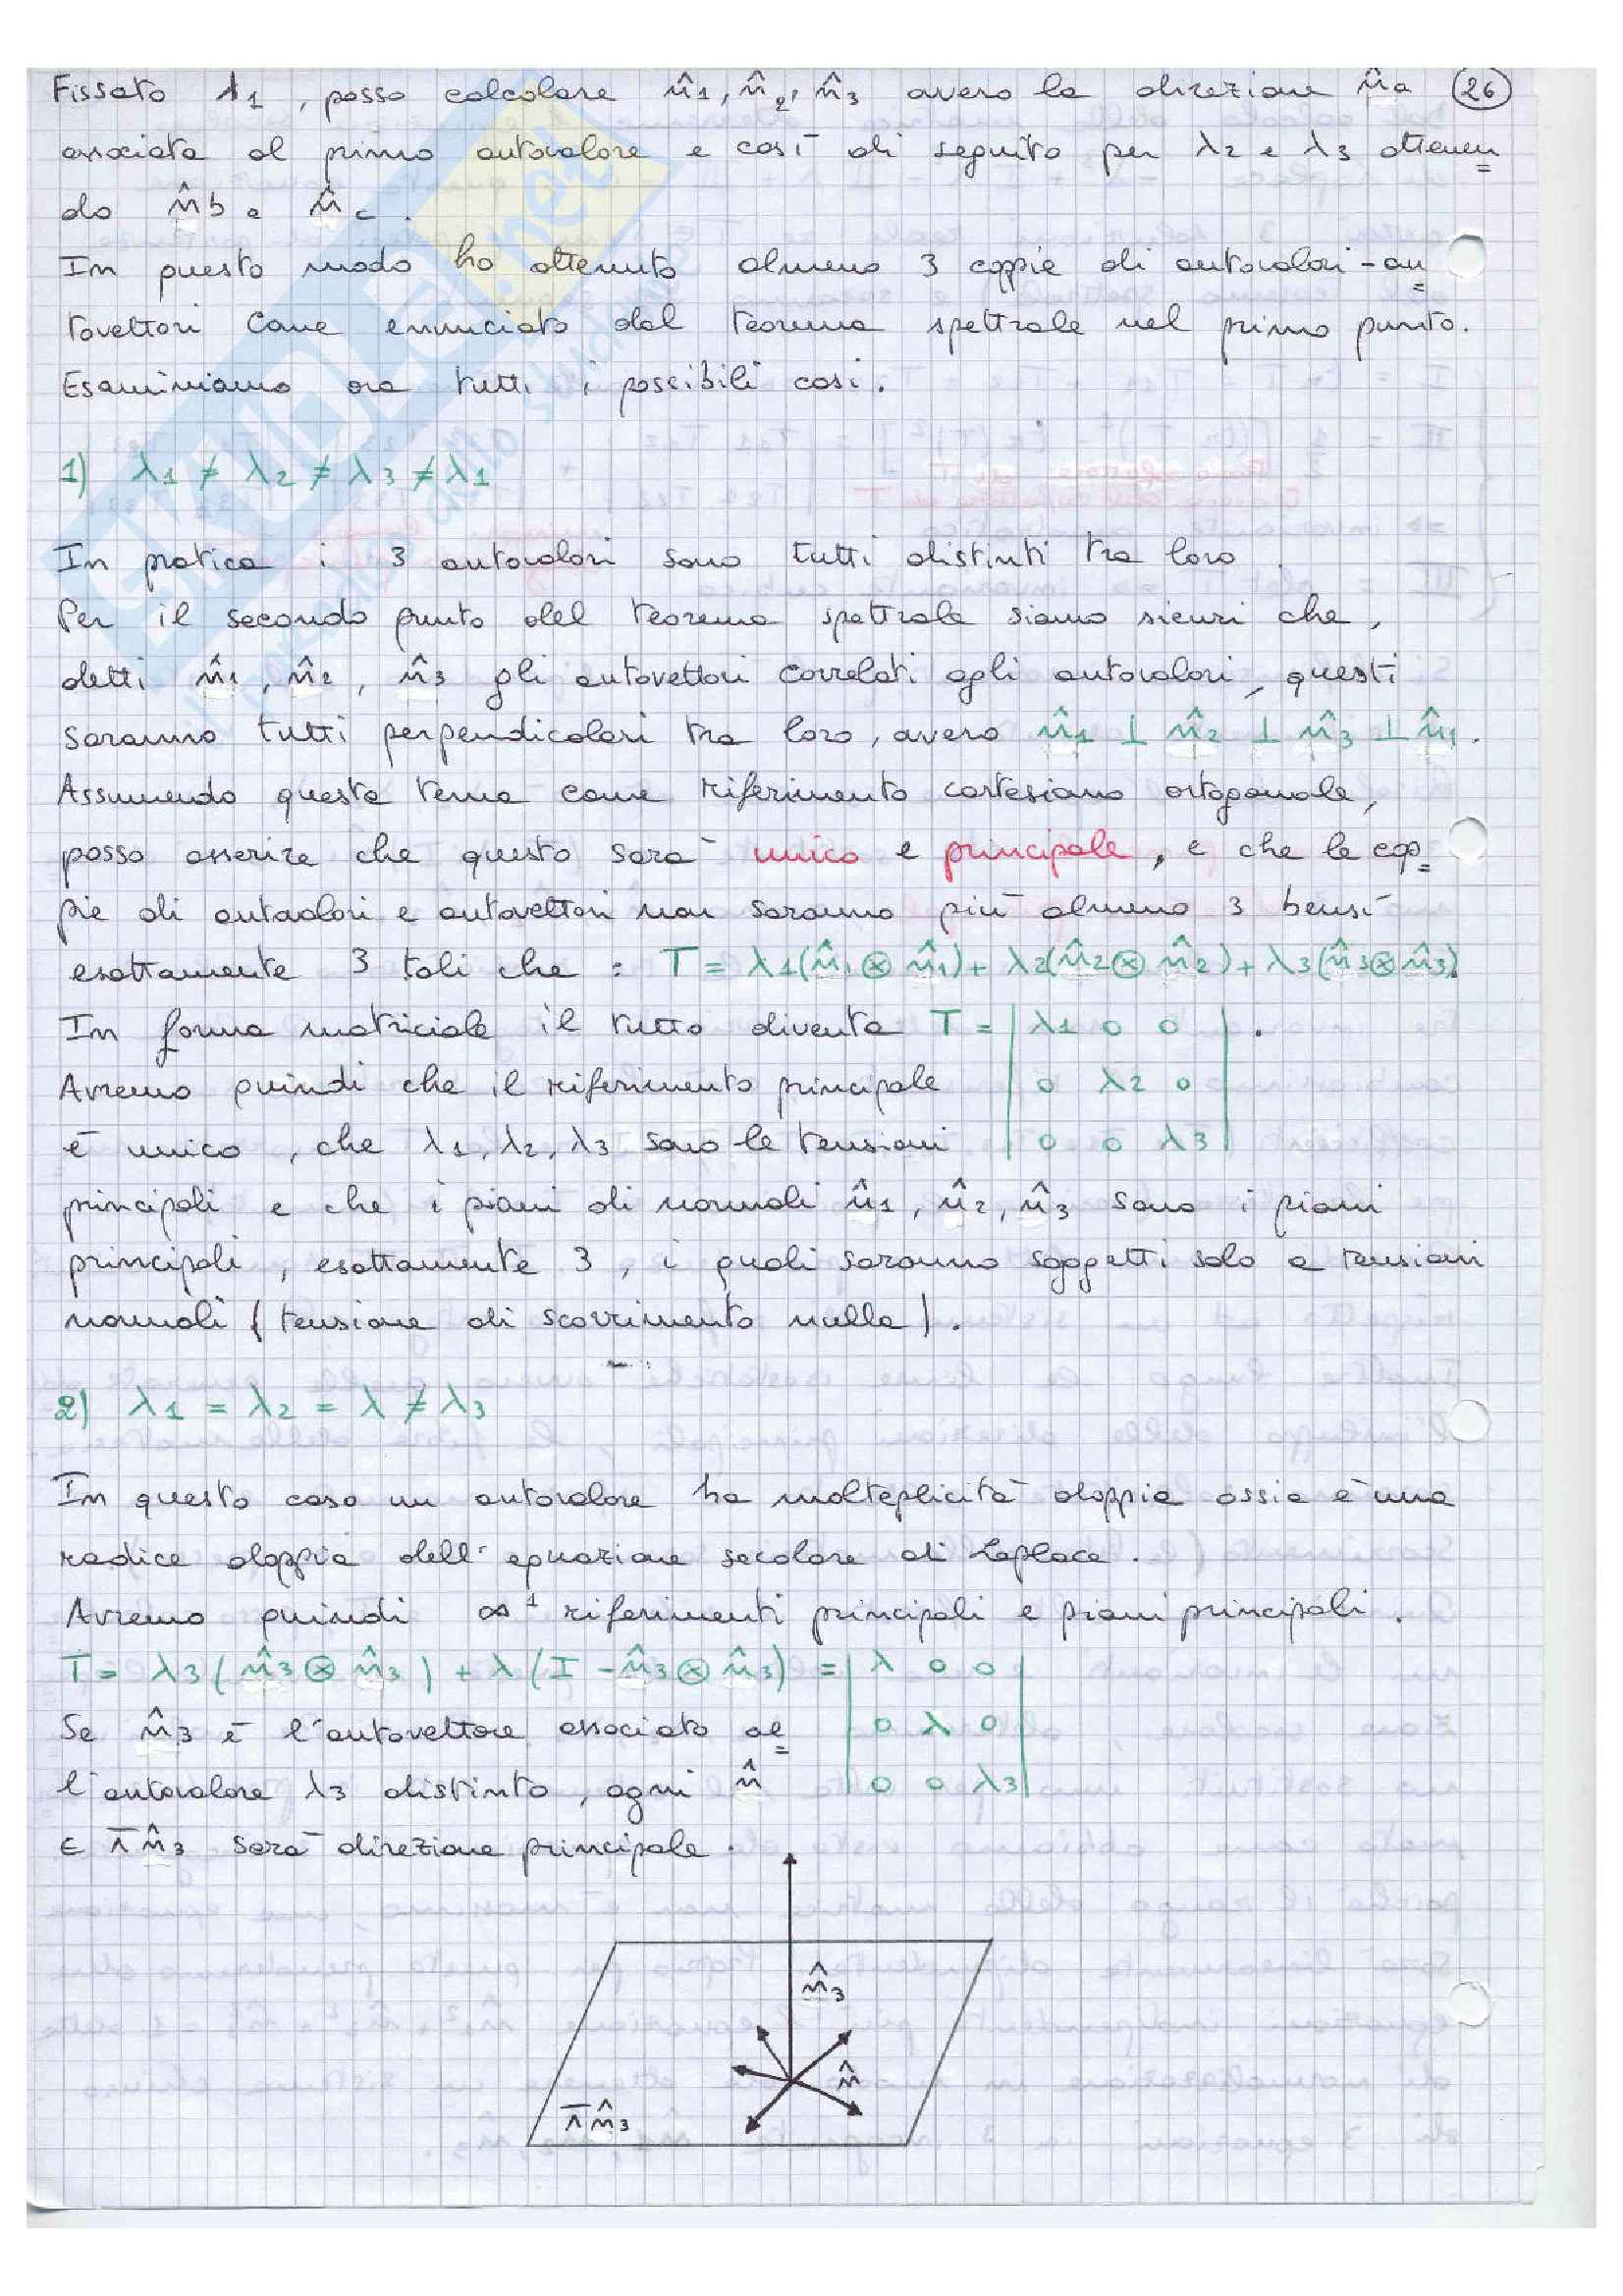 Fissato λ1, posso calcolare n̂1, n̂2, n̂3 ovvero la direzione n̂a (26)
associata al primo autovalore e così di seguito per λ2 e λ3 ottenen
do n̂b e n̂c.
In questo modo ho ottenuto almeno 3 coppie di autovalori-au
tovettori come enunciato dal teorema spettrale nel primo punto.
Esaminiamo ora tutti i possibili casi.
1) λ1 ≠ λ2 ≠ λ3 ≠ λ1
In pratica i 3 autovalori sono tutti distinti tra loro.
Per il secondo punto del teorema spettrale siamo sicuri che,
detti n̂1, n̂2, n̂3 gli autovettori correlati agli autovalori, questi
saranno tutti perpendicolari tra loro, ovvero n̂1 ⊥ n̂2 ⊥ n̂3 ⊥ n̂1.
Assumendo questa terna come riferimento cartesiano ortogonale,
posso asserire che questo sarà unico e principale, e che le cop
pie di autovalori e autovettori non saranno più almeno 3 bensì
esattamente 3 tali che : T = λ1(n̂1 ⊗ n̂1) + λ2(n̂2 ⊗ n̂2) + λ3(n̂3 ⊗ n̂3)
In forma matriciale il tutto diventa T = | λ1 0 0 | .
Avremo quindi che il riferimento principale | 0 λ2 0 |
è unico, che λ1, λ2, λ3 sono le tensioni | 0 0 λ3 |
principali e che i piani di normali n̂1, n̂2, n̂3 sono i piani
principali, esattamente 3, i quali saranno soggetti solo a tensioni
normali (tensione di scorrimento nulla).
2) λ1 = λ2 = λ ≠ λ3
In questo caso un autovalore ha molteplicità doppia ossia è una
radice doppia dell'equazione secolare di Laplace.
Avremo quindi ∞¹ riferimenti principali e piani principali.
T = λ3(n̂3 ⊗ n̂3) + λ(I - n̂3 ⊗ n̂3) = | λ 0 0 |
Se n̂3 è l'autovettore associato al | 0 λ 0 |
l'autovalore λ3 distinto, ogni n̂ | 0 0 λ3 |
∈ πn̂3 sarà direzione principale.
n̂3
n̂
πn̂3
SKUOLA.net